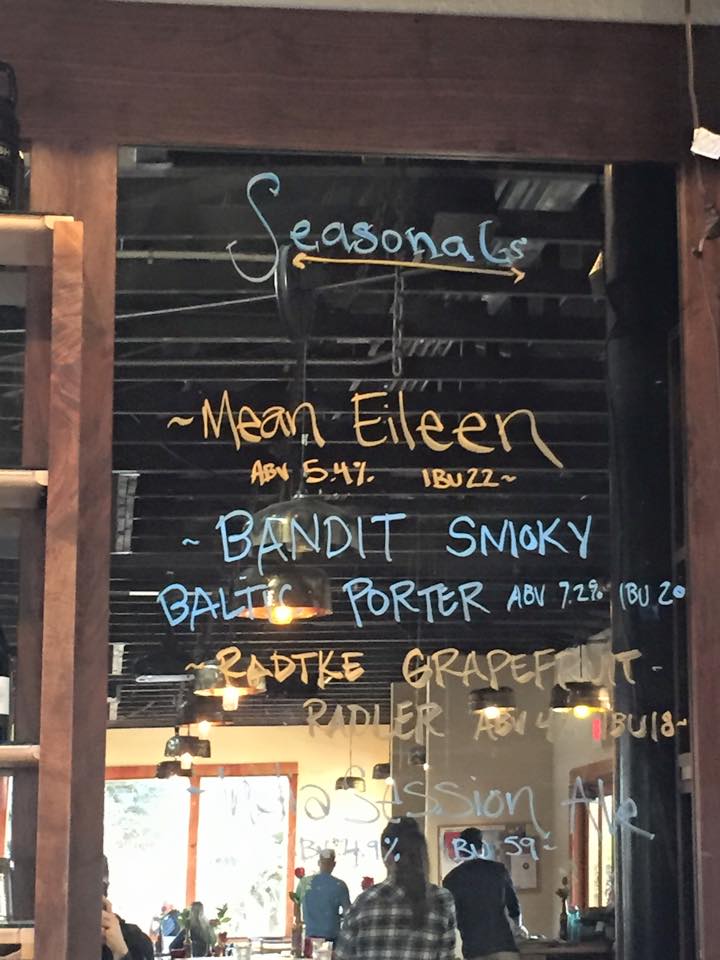 Seasonals
~Mean Eileen
ABV 5.4% IBU 22~
~BANDIT SMOKY
BALTIC PORTER ABV 7.2% IBU 20
~RADTKE GRAPEFRUIT-
RADLER ABV 4 IBU 18~
Session Ale
ABV 4.9% IBU 59~